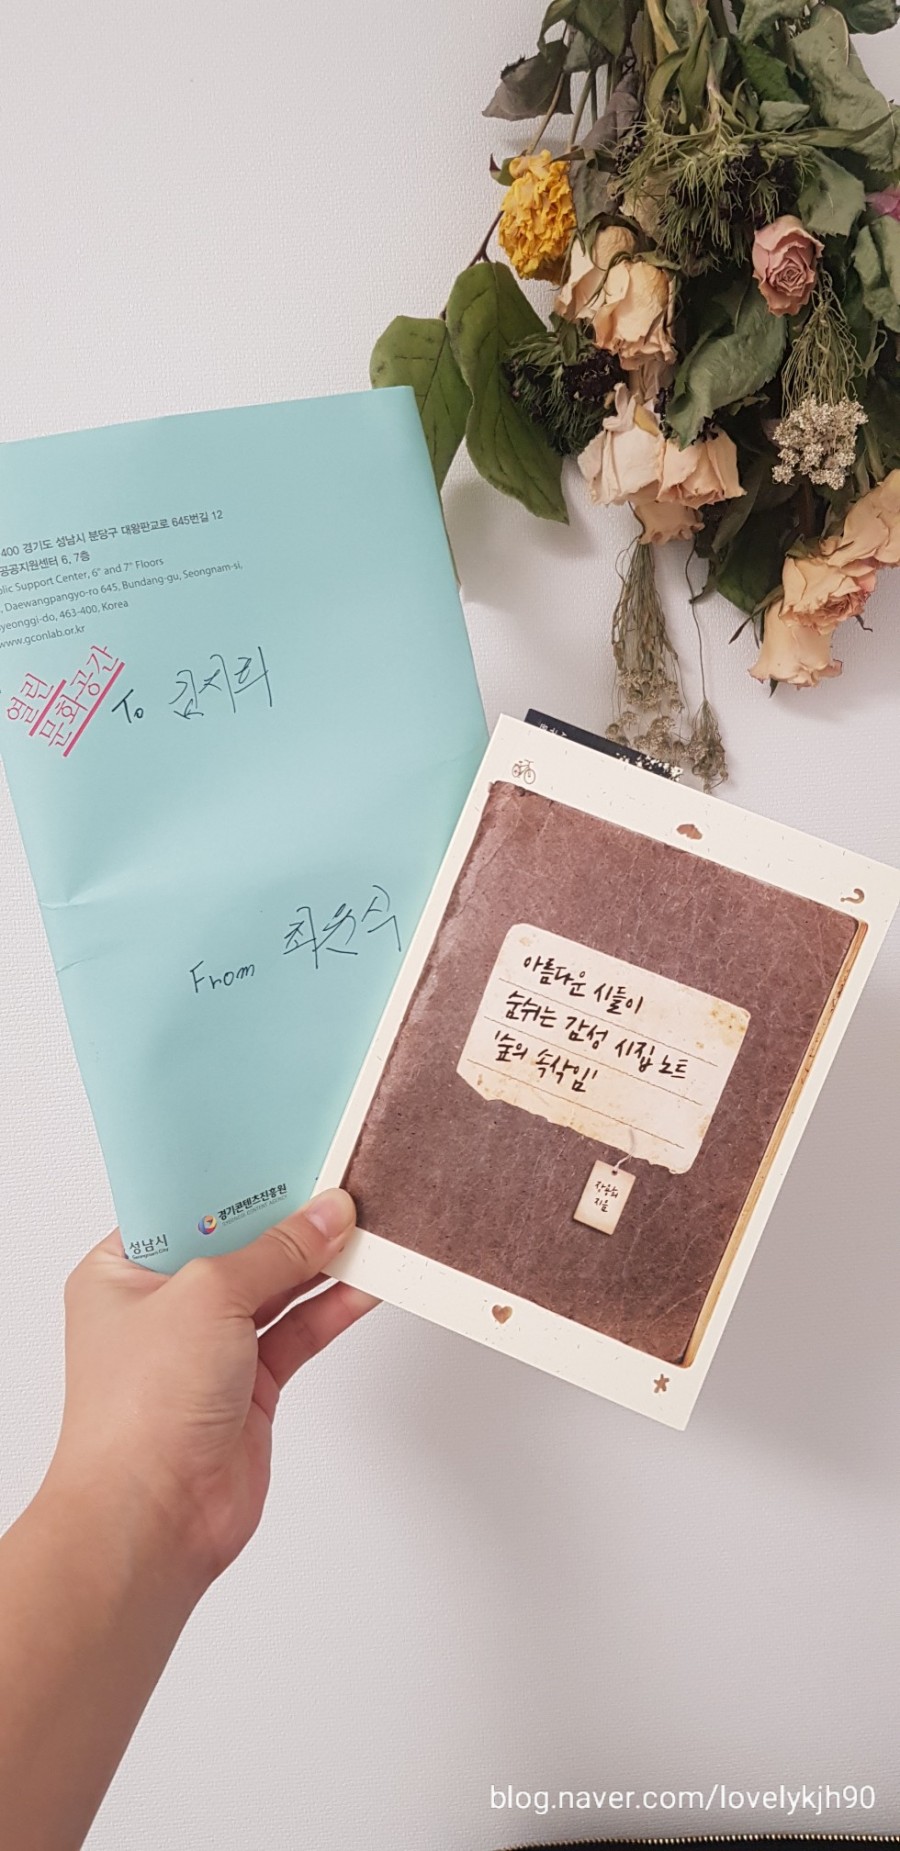 400 경기도 성남시 분당구 대왕판교로 645번길 12
공공지원센터 6, 7층
blic Support Center, 6" and 7" Floors
, Daewangpangyo-ro 645, Bundang-gu, Seongnam-si,
yeonggi-do, 463-400, Korea
www.gconlab.or.kr
열린
문화공간
To 김지희
From 최윤식
경기콘텐츠진흥원
GYEONGGI CONTENT AGENCY
성남시
Seongnam City
아름다운 시들이
숨쉬는 감성 시집 노트
'숲의 속삭임'
장용희
지음
blog.naver.com/lovelykjh90